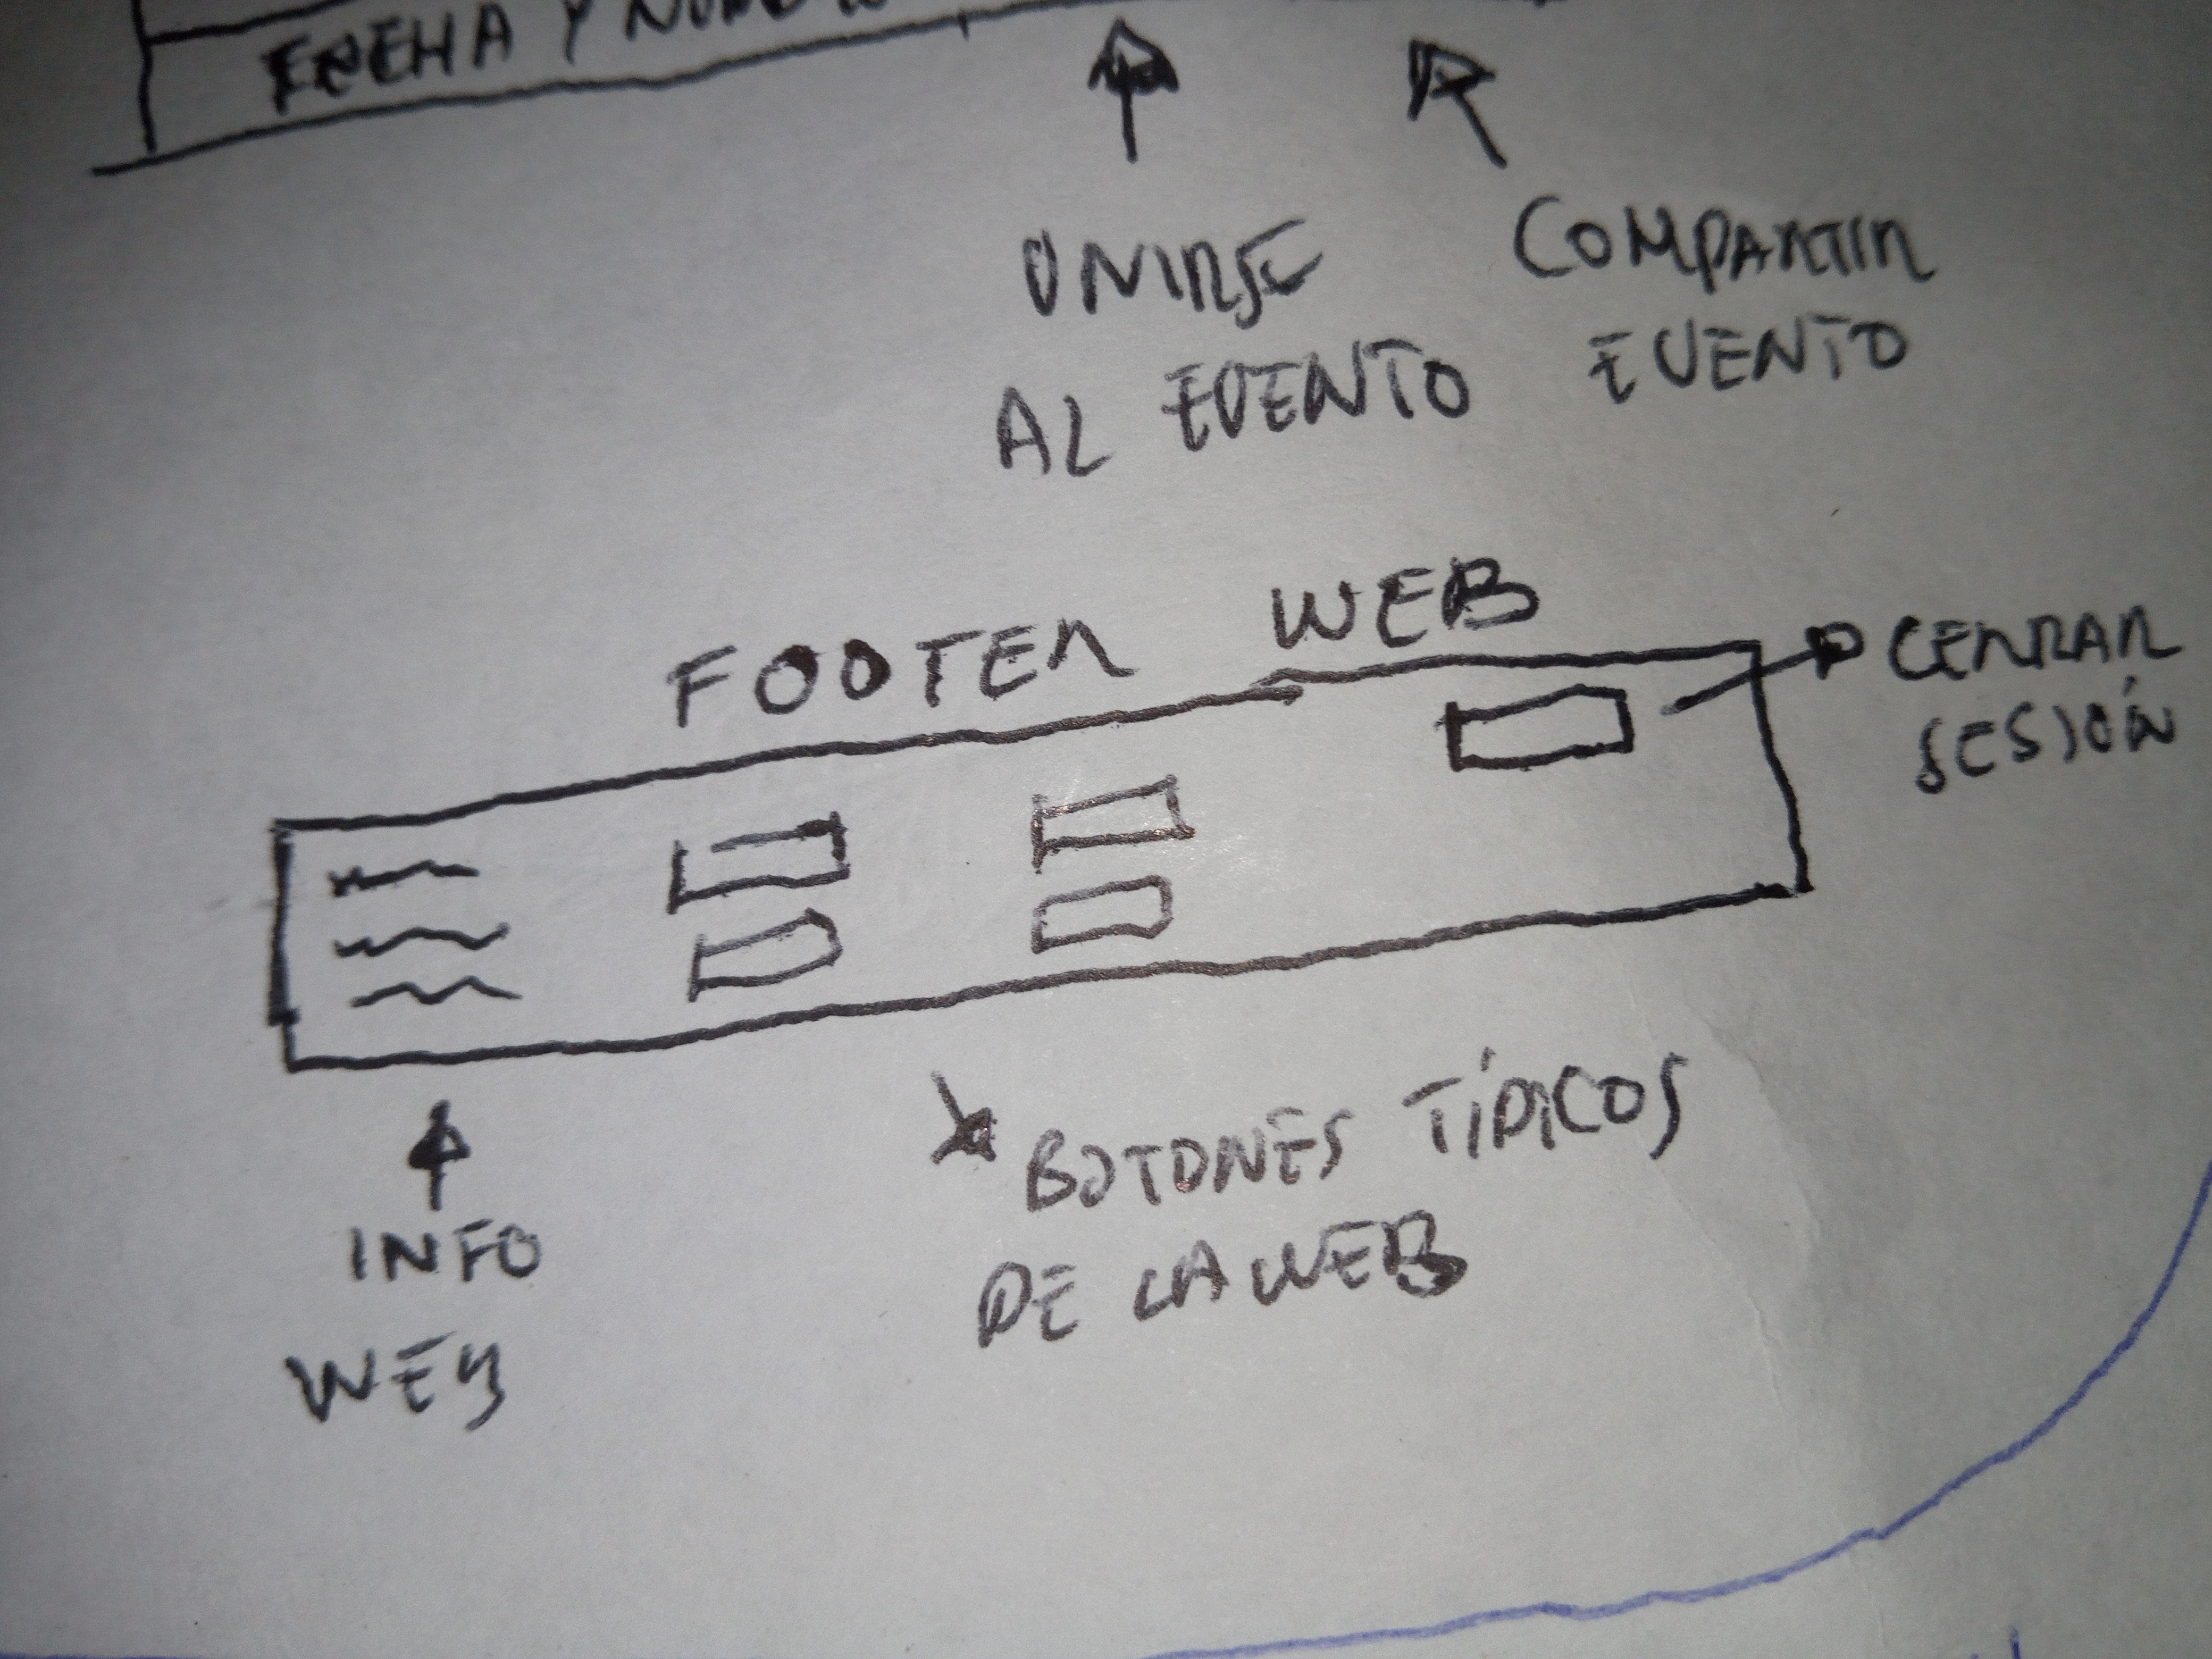 FECHA Y
UNIRSE
AL EVENTO
COMPARTIR
EVENTO
FOOTER WEB
CERRAR
SESIÓN
INFO
WEB
BOTONES TÍPICOS
DE LA WEB